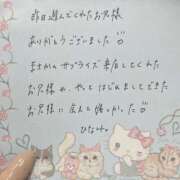 昨日遊んでくれたお兄様
ありがとうございました♡
まさかの サプライズ 来店してくれた
お兄様の、やっと はじめましてできた
お兄様に 会えて 嬉しかった♡
ひなの。